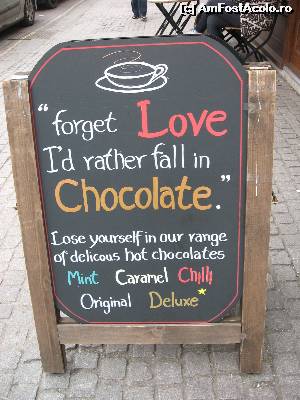 (c) AmFostAcolo.ro
"forget Love
I'd rather fall in
Chocolate."
Lose yourself in our range
of delicous hot chocolates
Mint Caramel Chilli
Original Deluxe